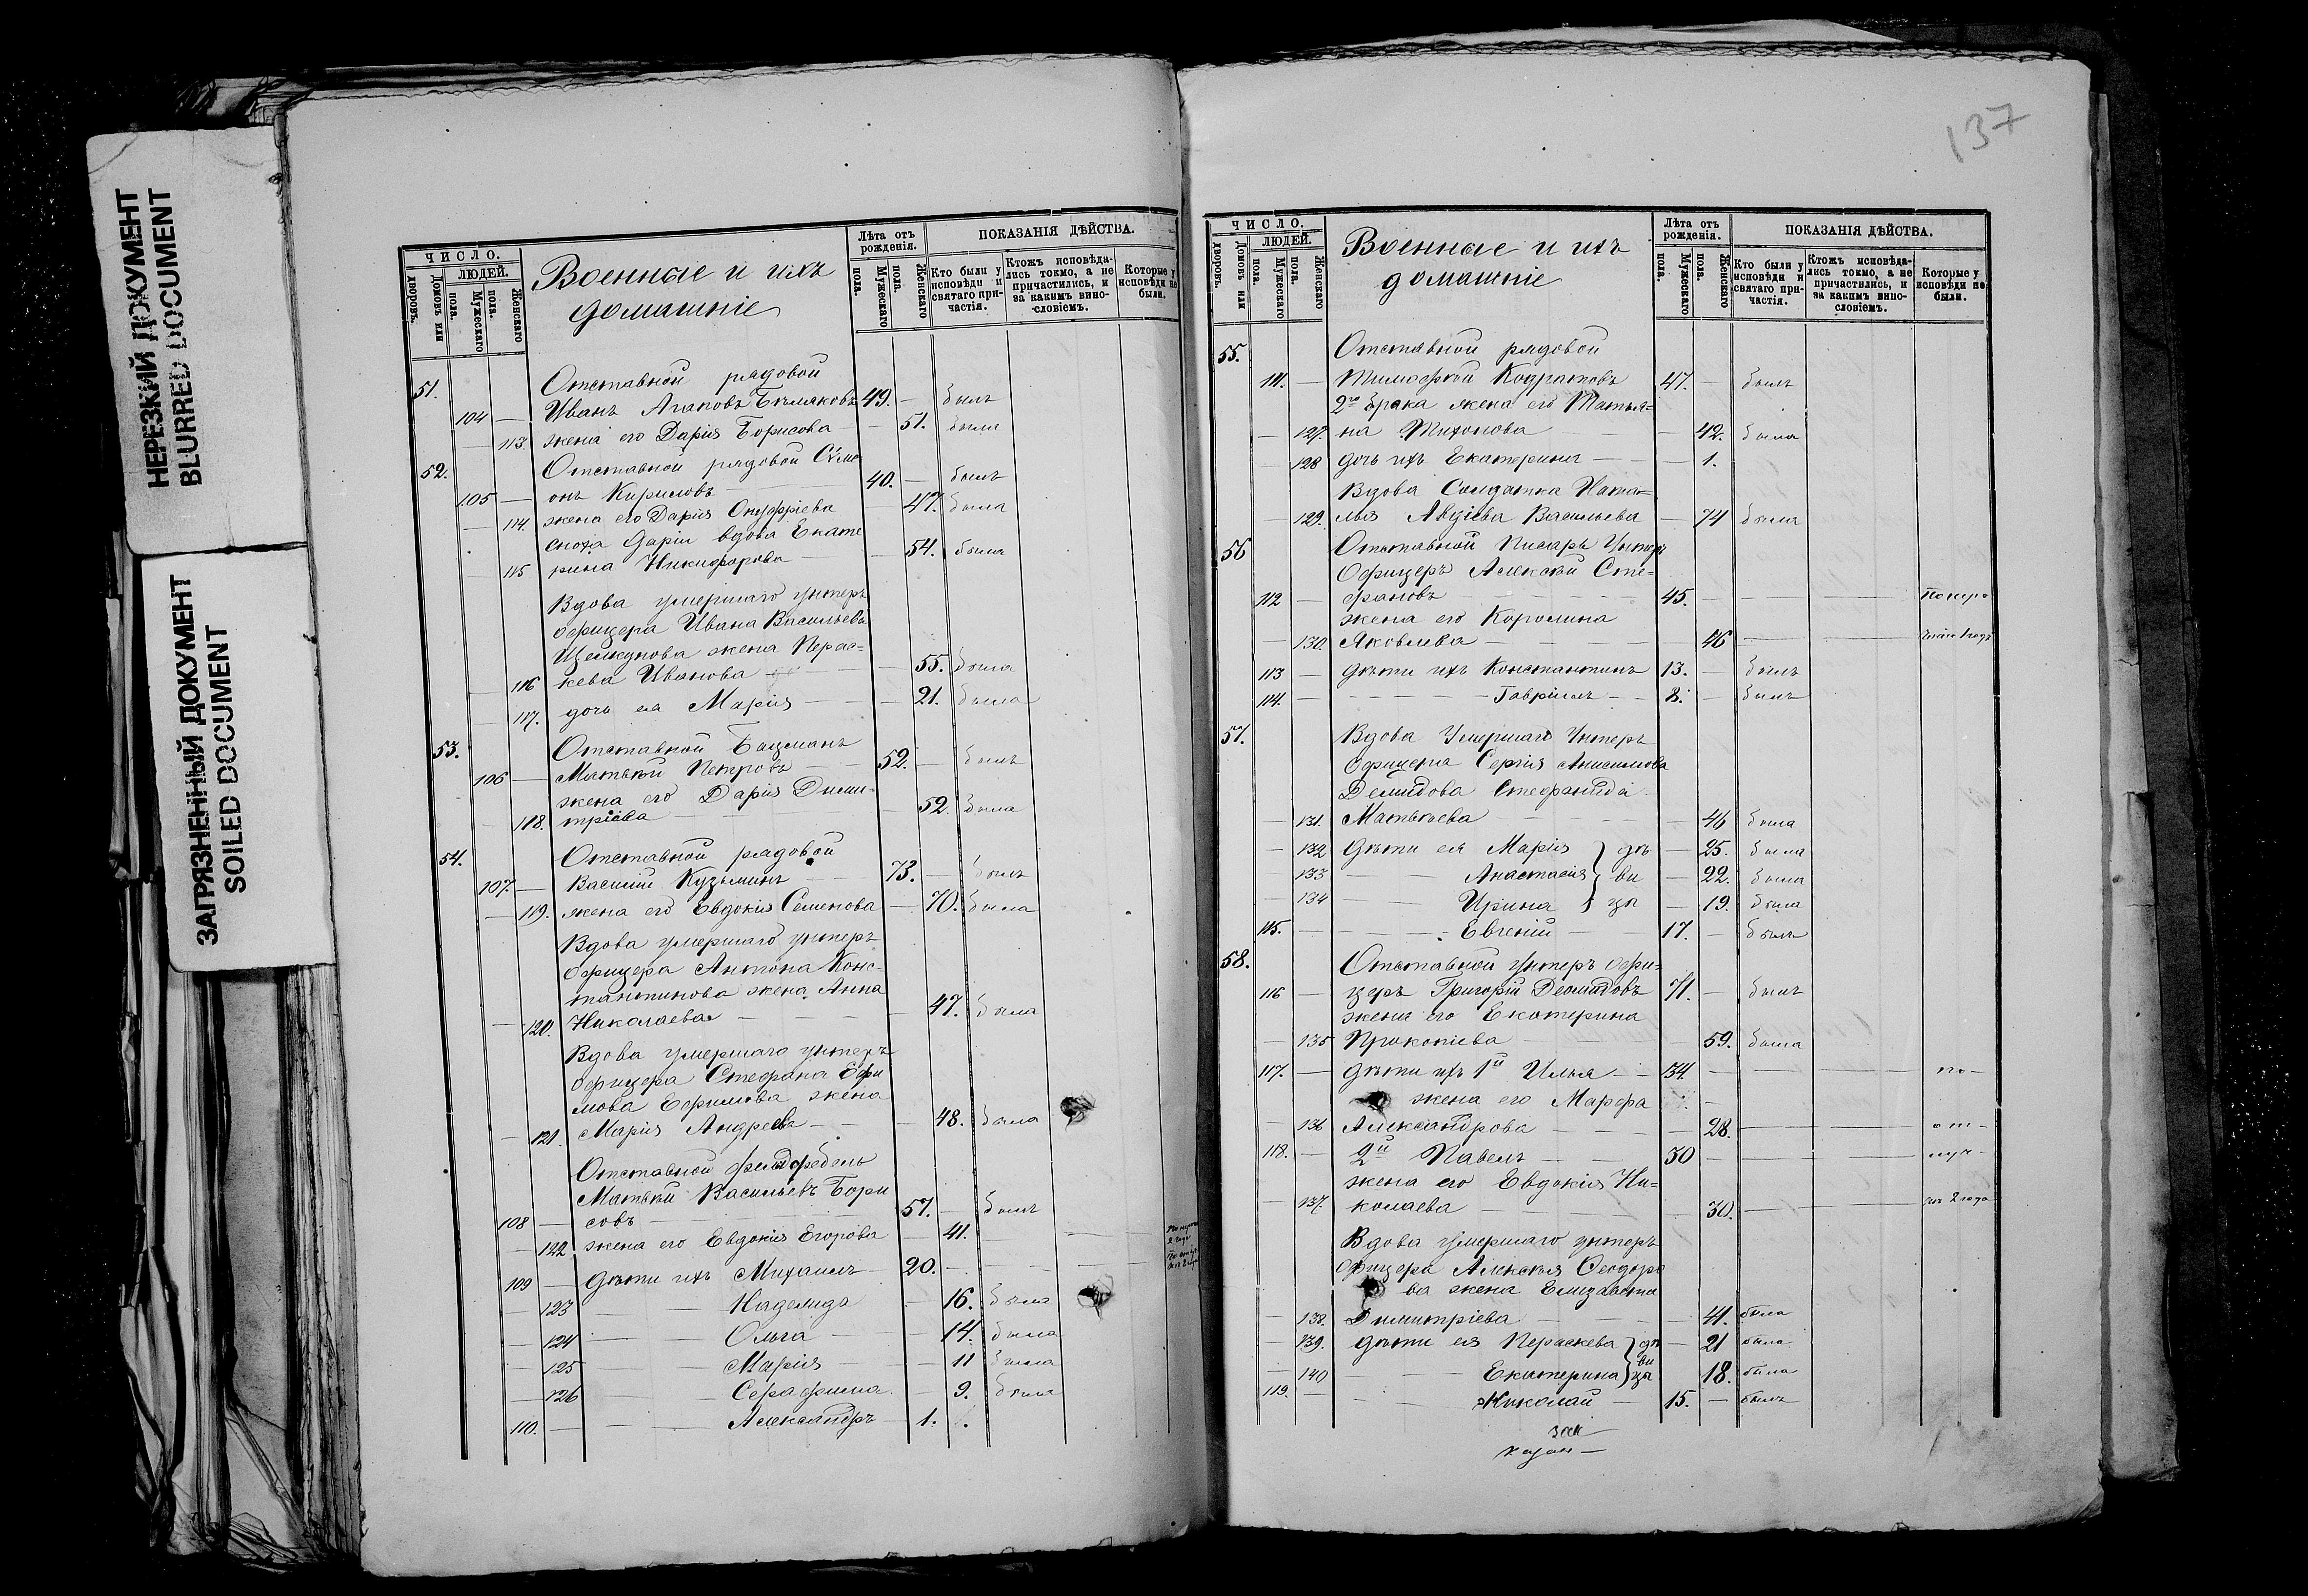 НЕРЕЗКИЙ ДОКУМЕНТ
BLURRED DOCUMENT
ЗАГРЯЗНЕННЫЙ ДОКУМЕНТ
SOILED DOCUMENT
ЧИСЛО.
ЛЮДЕЙ.
Домовъ или дворовъ.
Мужескаго пола.
Женскаго пола.
Военные и ихъ
домашніе
Лѣта отъ рожденія.
Мужескаго пола.
Женскаго пола.
ПОКАЗАНІЯ ДѢЙСТВА.
Кто были у исповѣди и святаго причастія.
Ктожъ исповѣдались токмо, а не причастились, и за какимъ винословіемъ.
Которые у исповѣди не были.
51. Отставной рядовой
104 — Иванъ Агаповъ 49. — былъ
— 113. жена его Дарія Борисова — 51. была
52. Отставной рядовой Сѵме
105 — онъ Кириловъ 40. — былъ
— 114. жена его Дарія Онуфріева — 47. была
сноха Даріи вдова Екате
— 115 рина Никифорова — 54. была
Вдова умершаго унтеръ
офицера Ивана Васильева
Щелкунова жена Перас=
— 116 кева Иванова — 55. была
— 117. дочь ея Марія — 21. была
53. Отставной Боцманъ
106 — Матвѣй Петровъ 52. — былъ
жена его Дарія Дими-
— 118. тріева — 52. была
54. Отставной рядовой
107. — Василій Кузьминъ 73. — былъ
— 119. жена его Евдокія Семенова — 70. была
Вдова умершаго унтеръ
офицера Антона Конс-
тантинова жена Анна
— 120. Николаева — 47. была
Вдова умершаго унтеръ
офицера Стефана Ефи
мова Ефимова жена
— 121. Марія Андреева — 48. была
Отставной фельдфебель
Матвѣй Васильевъ Бори
108 — совъ 57. — былъ
— 122 жена его Евдокія Егорова — 41.
109 — дѣти ихъ Михаилъ 20. —
— 123 Надежда — 16. была
— 124 Ольга — 14. была
— 125 Марія — 11 была
— 126 Серафима — 9. была
110. — Александръ 1.
137
ЧИСЛО.
ЛЮДЕЙ.
Домовъ или дворовъ.
Мужескаго пола.
Женскаго пола.
Военные и ихъ
домашніе
Лѣта отъ рожденія.
Мужескаго пола.
Женскаго пола.
ПОКАЗАНІЯ ДѢЙСТВА.
Кто были у исповѣди и святаго причастія.
Ктожъ исповѣдались токмо, а не причастились, и за какимъ винословіемъ.
Которые у исповѣди не были.
55. Отставной рядовой
111. — Тимофей Кодратовъ 47. — былъ
2го брака жена его Татья=
— 127. на Тихонова — 42. была
128 дочь ихъ Екатерина — 1.
Вдова Солдатка Ната=
— 129. лья Авдіева Васильева — 74 была
56 Отставной Писарь Унтеръ
Офицеръ Алексѣй Сте=
112 — фановъ 45. —
жена его Королина
— 130. Яковлева — 46
113 — дѣти ихъ Константинъ 13. — былъ
114. — Гавріилъ 8. — былъ
57. Вдова Умершаго Унтеръ
Офицера Сергія Анисимова
Демидова Стефанида
— 131. Матвѣева — 46 была
— 132 Дѣти ея Марія } дѣ — 25. была
— 133 Анастасія } ви — 22. была
— 134 Ирина } цы — 19. была
115. — Евгеній 17. — былъ
58. Отставной унтеръ офи=
116 — церъ Григорій Демидовъ 71. — былъ
жена его Екатерина
— 135 Прокопіева — 59. была
117. — дѣти ихъ 1й Илья 34. — по-
жена его Марфа
— 136 Александрова — 28. — от-
118. — 2й Павелъ 30 — луч-
жена его Евдокія Ни=
— 137. колаева — 30. 2 года
Вдова умершаго унтеръ
Офицера Алексѣя Ѳеодоро
ва жена Елизавета
— 138. Димитріева — 41. была
— 139. дѣти ея Пераскева } дѣ — 21 была
— 140 Екатерина } ви цы — 18. была
119. — Николай 15. — былъ